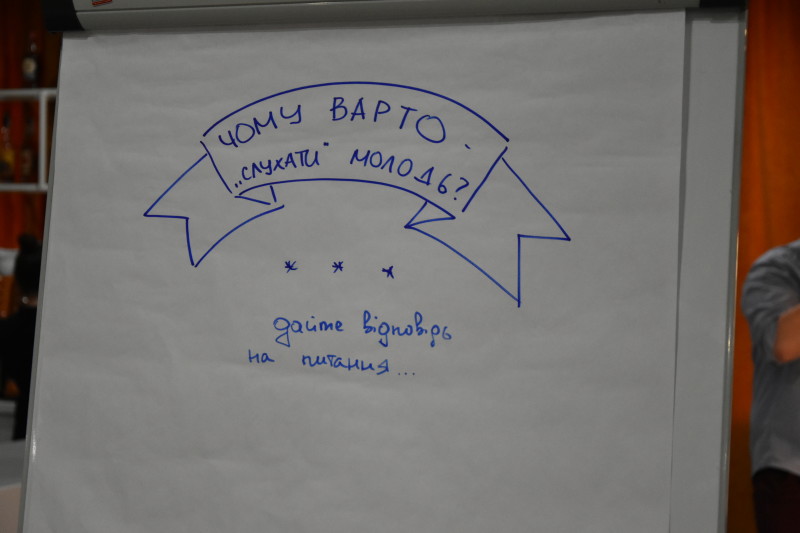 ЧОМУ ВАРТО
„СЛУХАТИ" МОЛОДЬ?
* * *
дайте відповідь
на питання...